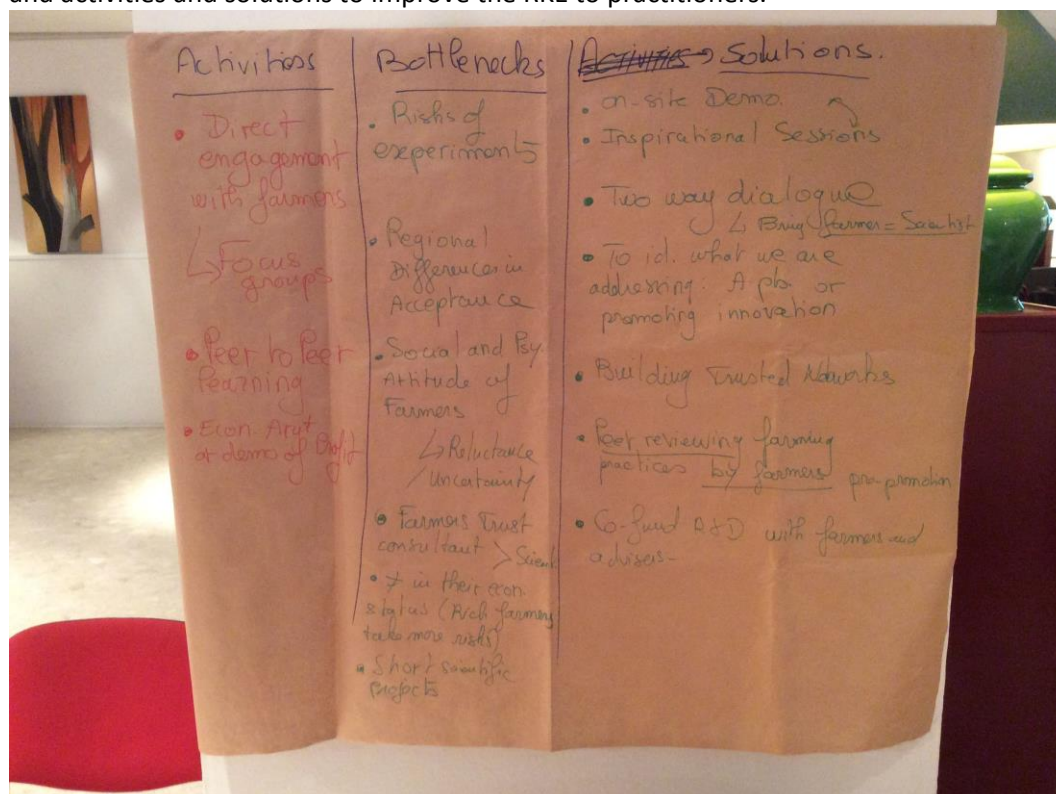 Activities
• Direct
engagement
with farmers
↳ Focus
groups
• Peer to Peer
Learning
• Econ. Arg^t
or demo of Profit
Bottlenecks
• Risks of
experiments
• Regional
Differences in
Acceptance
• Social and Psy.
Attitude of
Farmers
↳ Reluctance
/ Uncertainty
• Farmers Trust
consultant > Scient
• ≠ in their econ.
status (Rich farmers
take more risks)
• Short scientific
projects
→ Solutions.
• on-site Demo.
• Inspirational Sessions
• Two way dialogue
↳ Bring farmer = Scientist
• To id. what we are
addressing. A pb or
promoting innovation
• Building Trusted Networks
• Peer reviewing farming
practices by farmers pre-promotion
• Co-fund R&D with farmers and
advisers-